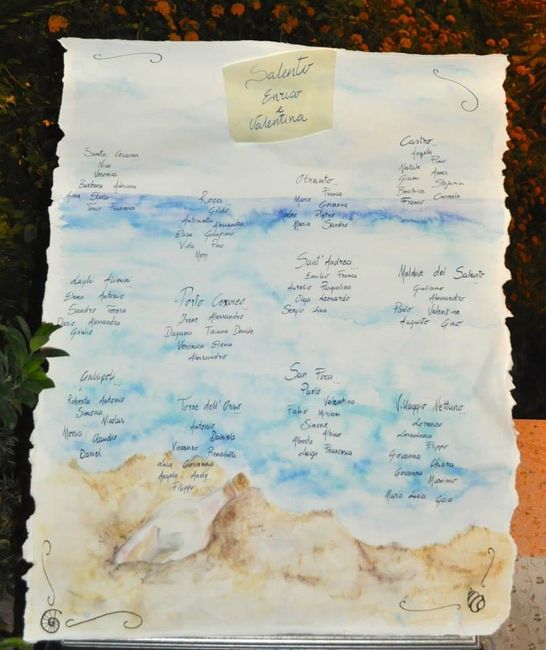 Salento
Enrico
e
Valentina
Castro
Angela
Pino
Natale Anna
Gianni Stefania
Beatrice
Franco Carmela
Santa Cesarea
Nico
Veronica
Barbara Adriana
Anna Stella
Tonio Francesca
Otranto
Franca
Mario Giovanna
Pietro
Maria Sandro
Roca
Gilda
Antonella Alessandra
Elisa Giuseppina
Viola Pino
Mery
Sant'Andrea
Emilio Franca
Aurelio Pasqualina
Olga Leonardo
Sergio Lucia
Maldive del Salento
Giuliano
Alessandro
Paolo Valentina
Augusto Gino
Laghi Alimini
Elena Antonio
Sandro Teresa
Alessandra
Giulio
Porto Cesareo
Irene Alessandro
Dayana Tatiana Davide
Veronica Elena
Alessandro
Gallipoli
Roberta Antonio
Simona
Nicolas
Monia Claudio
Daniel
Torre dell'Orso
Antonio
Daniela
Vincenzo Benedetta
Luca Giovanna
Angela Andy
Filippo
San Foca
Paolo
Valentina
Fabio Miriam
Simone
Alberto Albino
Luigi Francesca
Villaggio Nettuno
Lorenzo
Loredana
Filippo
Giovanna Chiara
Giovanna Massimo
Maria Lucia Gaia